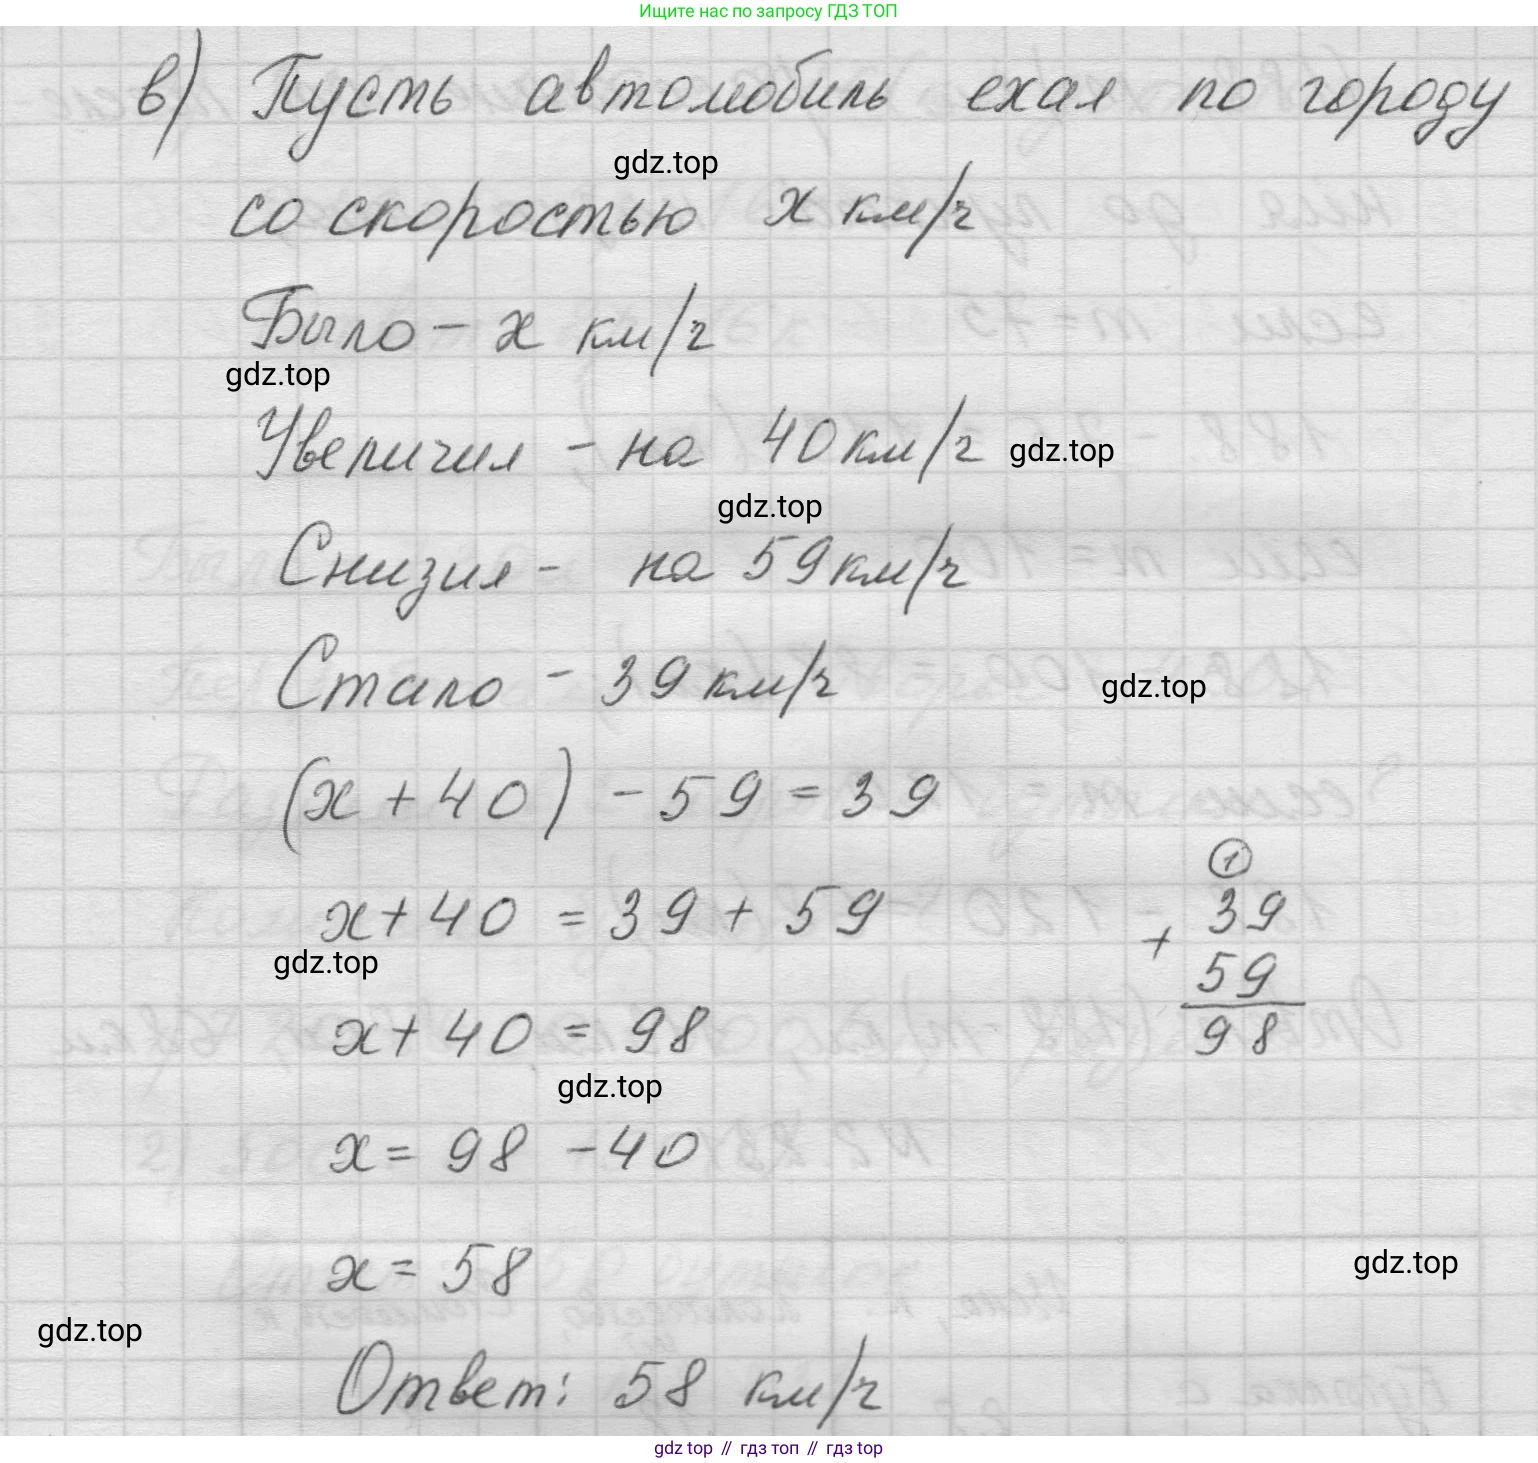 Ищите нас по запросу ГДЗ ТОП
в) Пусть автомобиль ехал по городу
gdz.top
со скоростью x км/ч
Было – x км/ч
gdz.top
Увеличил – на 40 км/ч gdz.top
gdz.top
Снизил – на 59 км/ч
Стало – 39 км/ч
gdz.top
(x + 40) – 59 = 39
1
x + 40 = 39 + 59
39
+
59
98
gdz.top
x + 40 = 98
gdz.top
x = 98 – 40
x = 58
gdz.top
gdz.top
Ответ: 58 км/ч
gdz top // гдз топ // гдз top